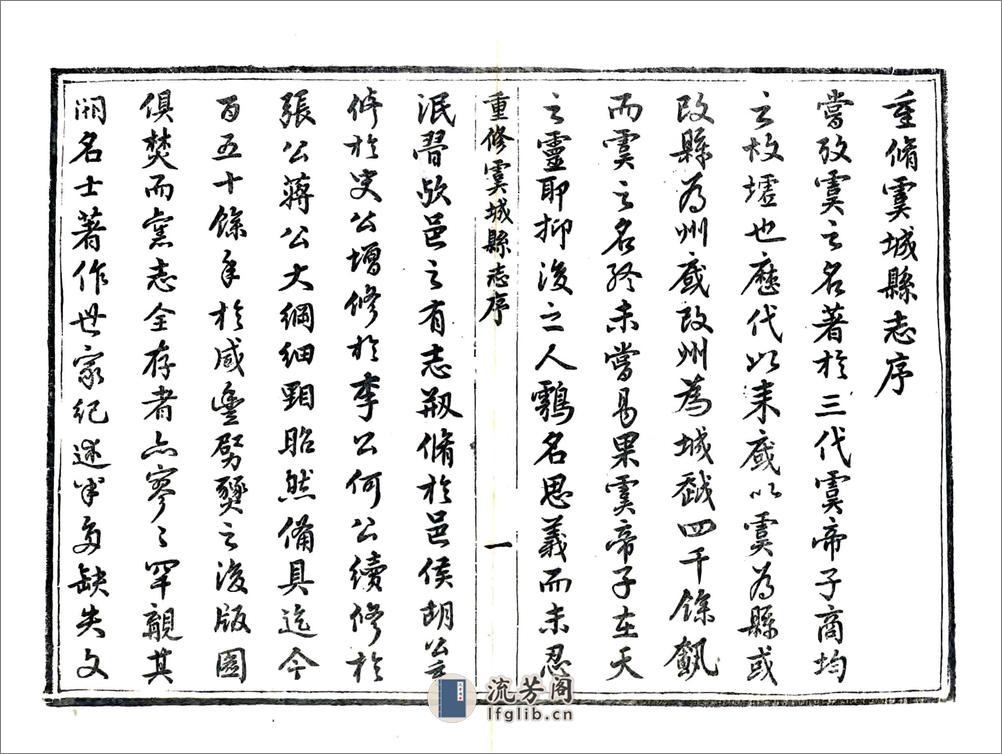 重脩虞城縣志序
嘗攷虞之名著於三代虞帝子商均
之故墟也歷代以来或以虞為縣或
改縣为州或改州為城越四千餘
而虞之名終未嘗易果虞帝子在天
之靈耶抑後之人顧名思義而未忍
重修虞城縣志序
一
泯㬱歟邑之有志刱脩於邑侯胡公
於史公增修於李公何公續修於
張公蔣公大綱細目昭然備具迄今
百五十餘年於咸豐劈之後版圖
俱焚而舊志全存者亦寥〻罕覯其
間名士著作世家紀述半多缺失文
流芳阁
lfglib.cn